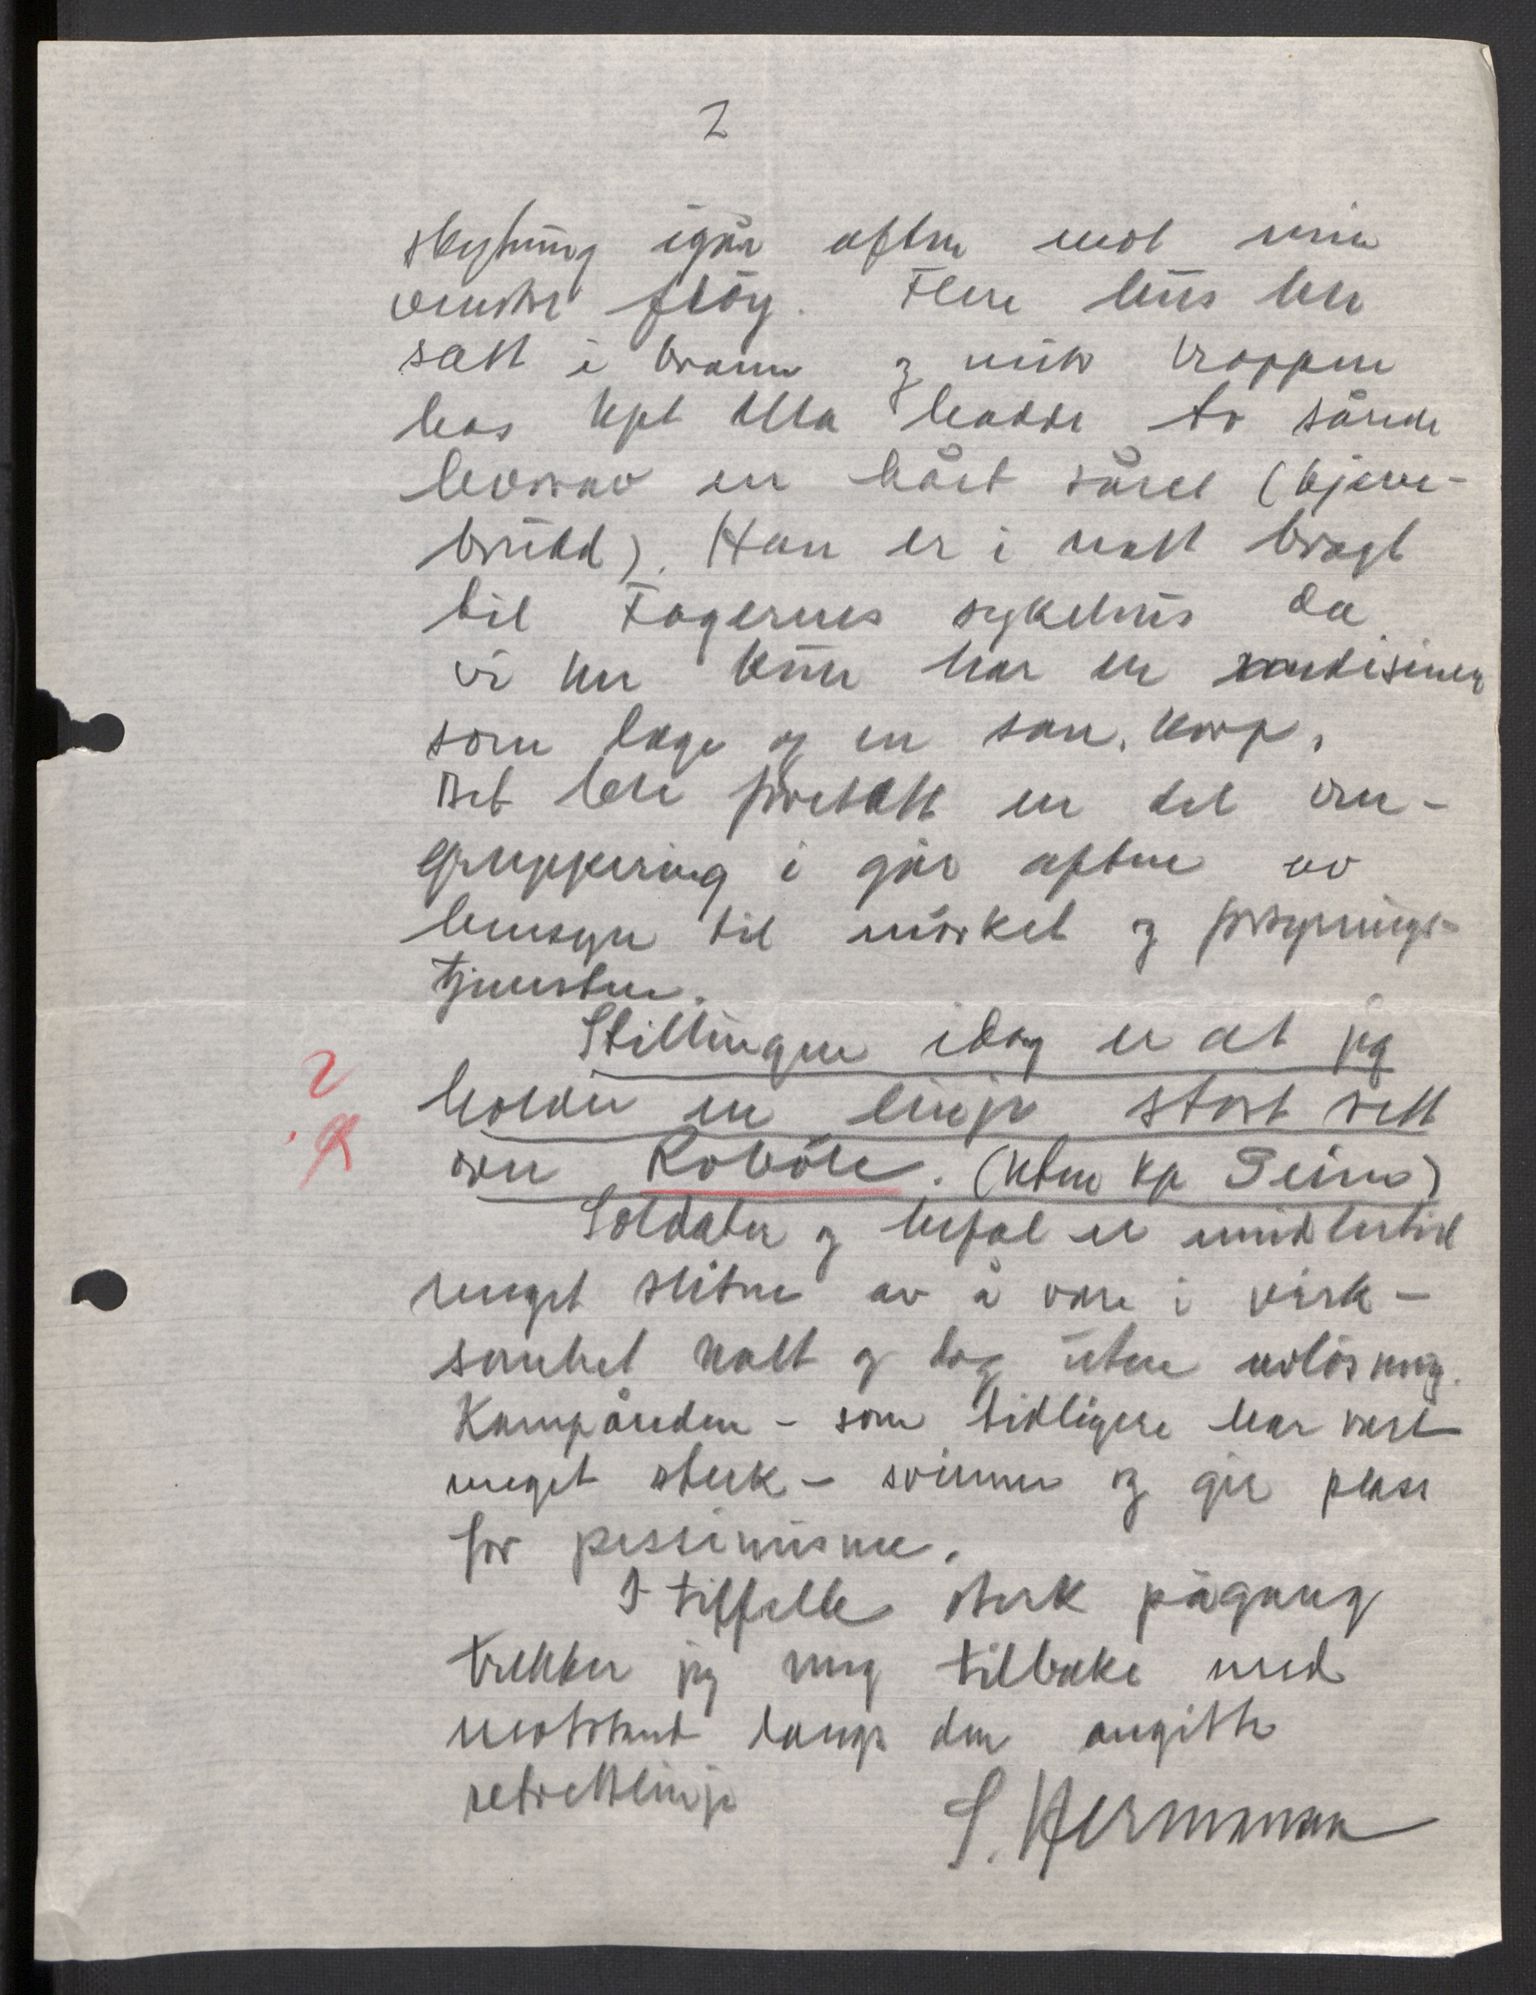 2
skytning igår aften mot min
venstre fløy. Flere hus ble
satt i brann og min troppen
hos kpt Ulla hadde to sårede
hvorav en hårt såret (kjeve-
brudd). Han er i natt bragt
til Fagernes sykehus da
vi nu kun har en medisiner
som læge og en san. korp.
Det ble foretatt en del om-
gruppering i går aften av
hensyn til mørket og forsynings-
tjenesten.
Stillingen idag er at jeg
2
holder en linje stort sett
om Robøle. (Uten kp Seims)
Soldater og befal er imidlertid
meget slitne av å være i virk-
somhet natt og dag uten avløsning.
Kampånden - som tidligere har vært
meget sterk - svinner og gir plass
for pessimisme.
I tilfelle sterk pågang
trekker jeg mig tilbake med
motstand langs den angitte
retrettlinje
S. Hermansen